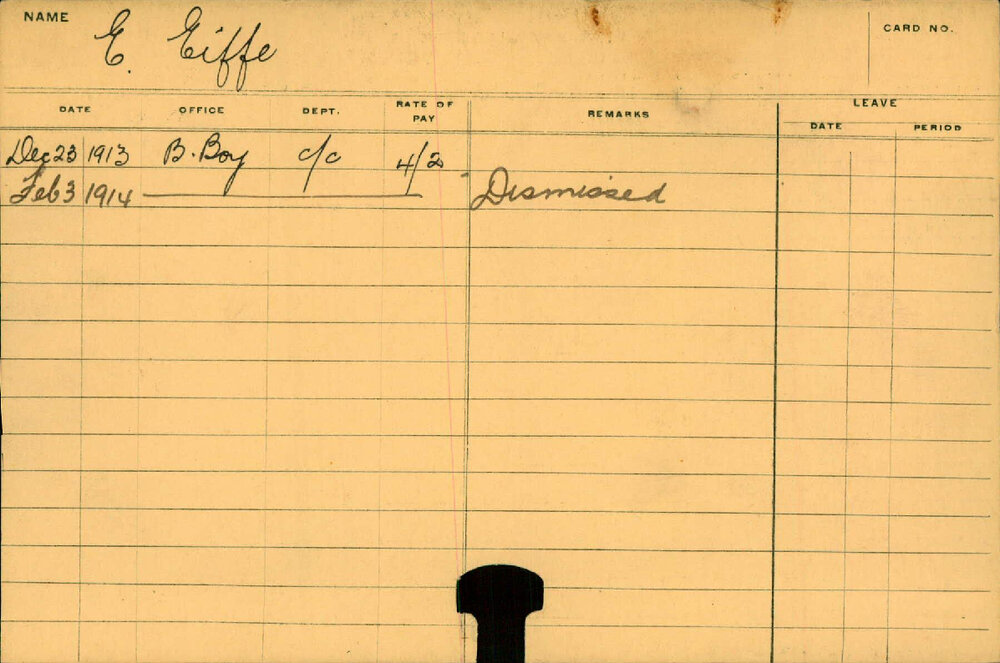 NAME E. Eiffe CARD NO.
DATE OFFICE DEPT. RATE OF PAY REMARKS LEAVE
DATE PERIOD
Dec 23 1913 B. Boy c/c 4/2
Feb 3 1914 Dismissed